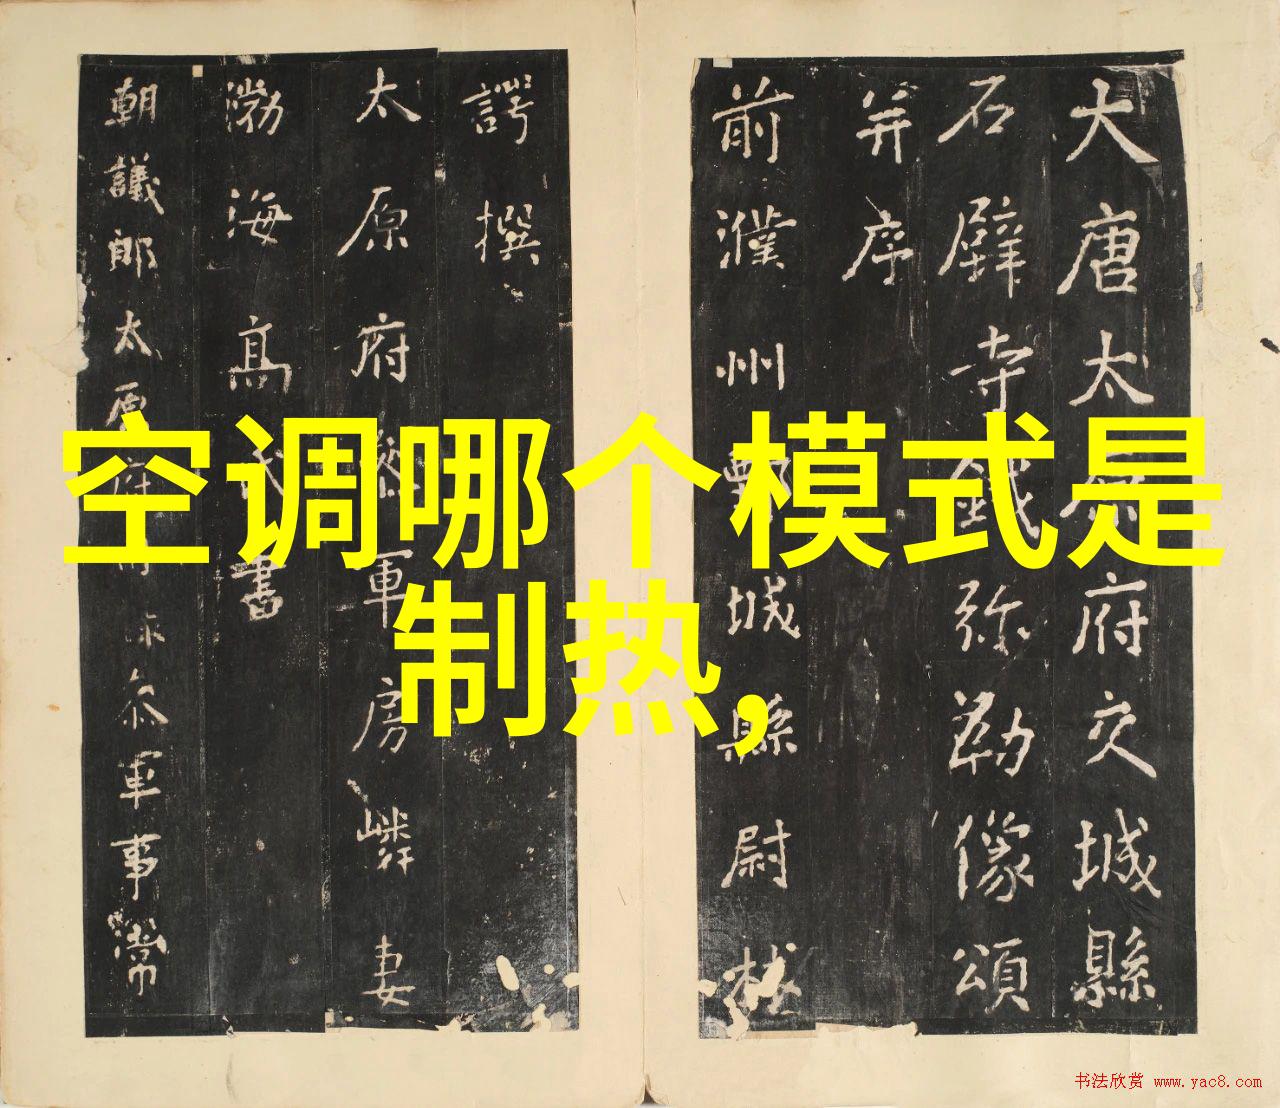 大唐太原府交城縣
石壁寺鐵弥勒像頌
并序
前濮州鄄城縣尉林
諤撰
太原府 軍房嶙妻
渤海高氏書
朝議郎太原府 叅軍事常
空调哪个模式是
制热,
书法欣赏 www.yac8.com